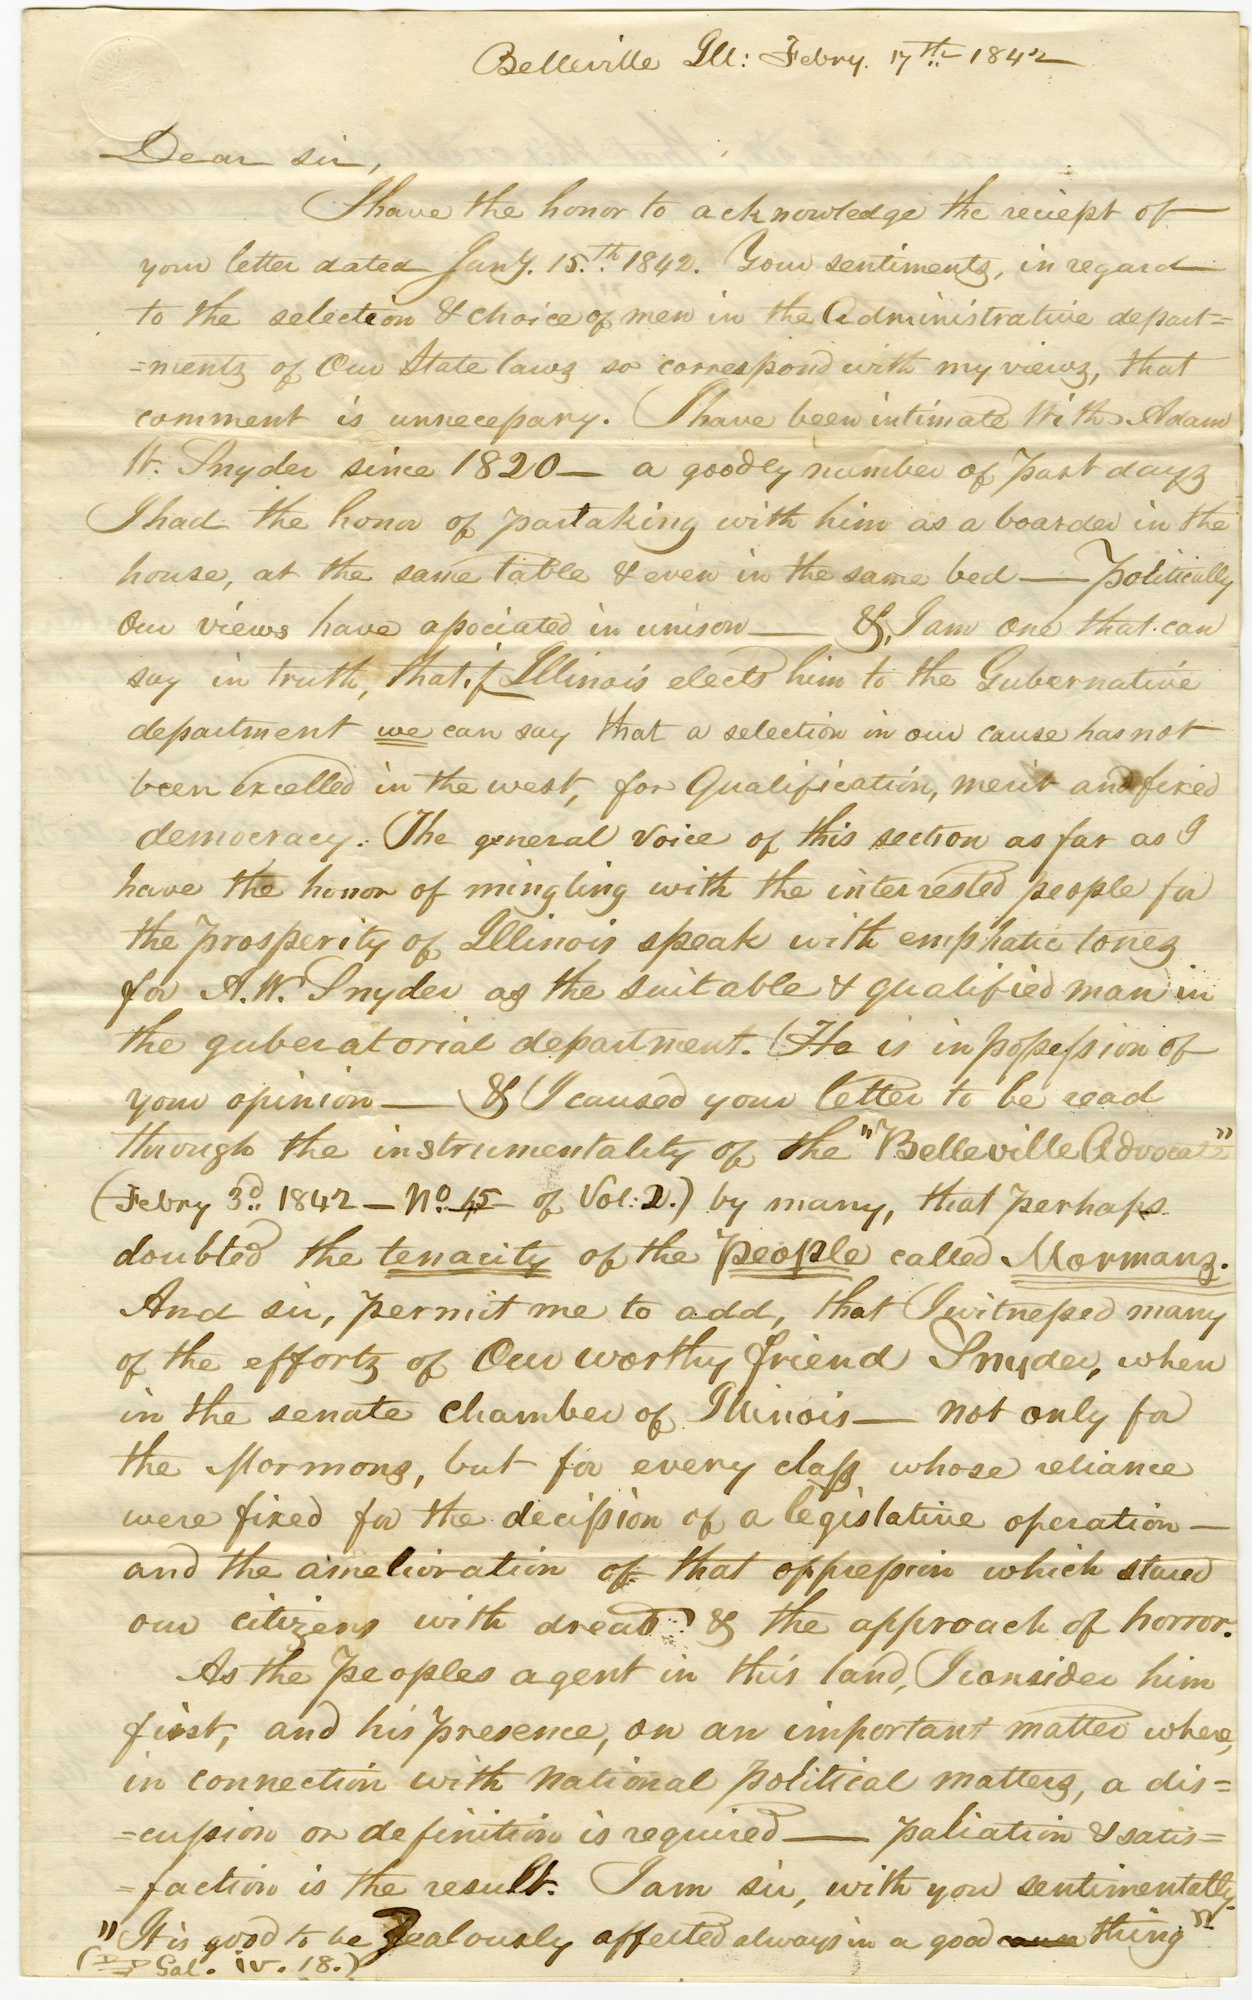 Belleville Ill: Febry. 17th 1842
Dear sir,
I have the honor to acknowledge the reciept of
your letter dated Jany. 15.th 1842. Your sentiments, in regard
to the selection & choice of men in the Administrative depart=
=ments of Our State laws so correspond with my views, that
comment is unnecessary. I have been intimate With Adam
W. Snyder since 1820 — a goodly number of past days
I had the honor of partaking with him as a boarder in the
house, at the same table & even in the same bed — Politically
Our views have associated in unison — &, I am one that can
say in truth, that if Illinois elects him to the Gubernative
department we can say that a selection in our cause has not
been excelled in the west, for Qualification, merit and fixed
democracy. The general voice of this section as far as I
have the honor of mingling with the interrested people for
the prosperity of Illinois speak with emphatic tones
for A. W. Snyder as the suitable & qualified man in
the guberatorial department. He is in possession of
your opinion — & I caused your letter to be read
through the instrumentality of the "Belleville Advocate"
(Febry 3d. 1842 — No. 15 of Vol: 2.) by many, that perhaps
doubted the tenacity of the people called Mormans.
And sir, permit me to add, that I witnessed many
of the efforts of Our worthy friend Snyder, when
in the senate chamber of Illinois — not only for
the Mormons, but for every class whose reliance
were fixed for the decission of a legislative operation —
and the amelioration of that oppression which stared
our citizens with dread & the approach of horror.
As the peoples agent in this land, I consider him
first, and his presence, on an important matter where,
in connection with national political matters, a dis=
=cussion or definition is required — paliation & satis=
=faction is the result. I am sir, with you sentimentally
"It is good to be Zealously affected always in a good cause thing"
Gal. iv. 18.)